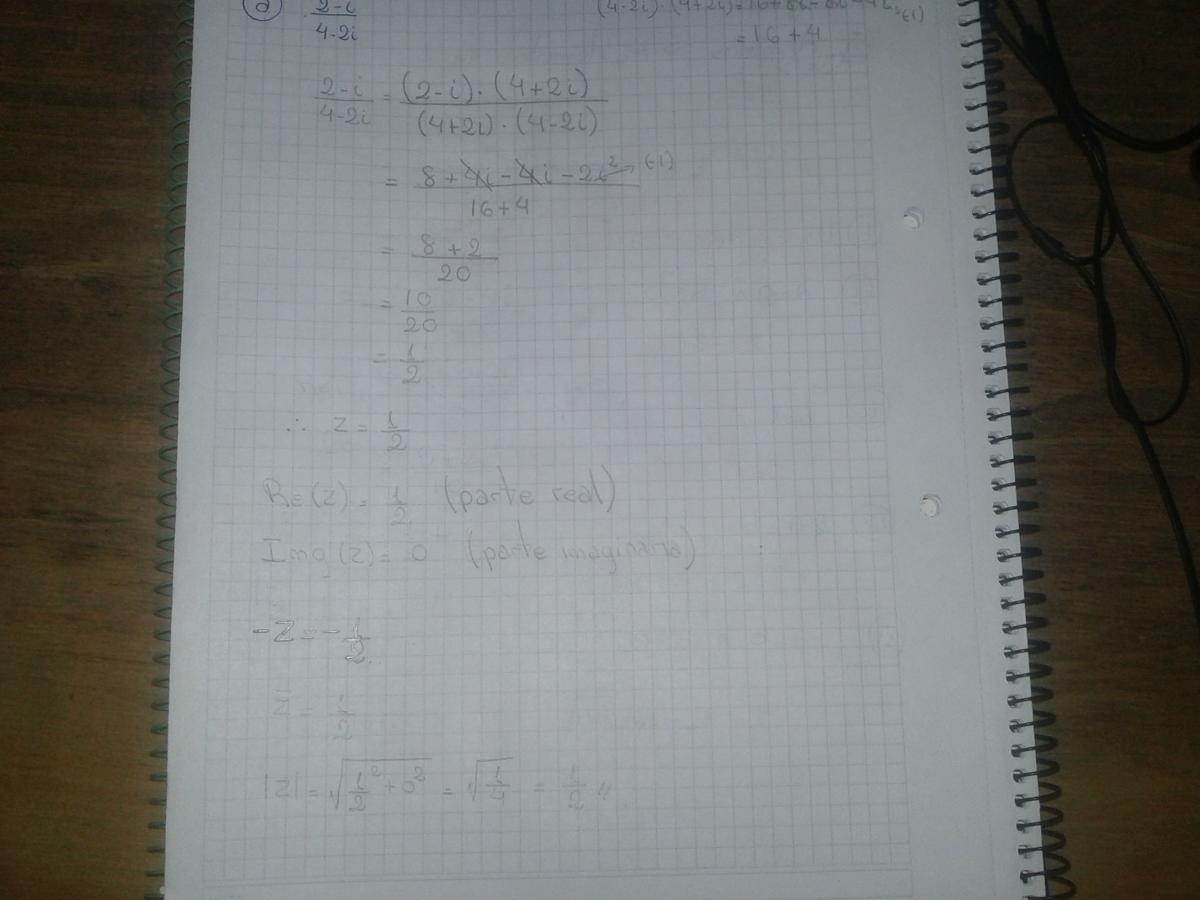 d) (2-i)/(4-2i)
(4-2i)·(4+2i)=16+8i-8i-4i²(-1)
=16+4
(2-i)/(4-2i) = ((2-i)·(4+2i))/((4+2i)·(4-2i))
= (8+4i-4i-2i²→(-1))/(16+4)
= (8+2)/20
= 10/20
= 1/2
∴ z = 1/2
Re(z) = 1/2 (parte real)
Img(z) = 0 (parte imaginaria)
-z = -1/2
z̄ = 1/2
|z| = √(1/2² + 0²) = √(1/4) = 1/2 //